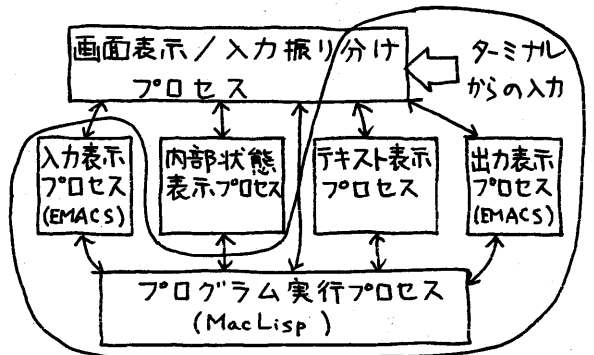 画面表示/入力振り分け
プロセス
ターミナル
からの入力
入力表示
プロセス
(EMACS)
内部状態
表示プロセス
テキスト表示
プロセス
出力表示
プロセス
(EMACS)
プログラム実行プロセス
(MacLisp)